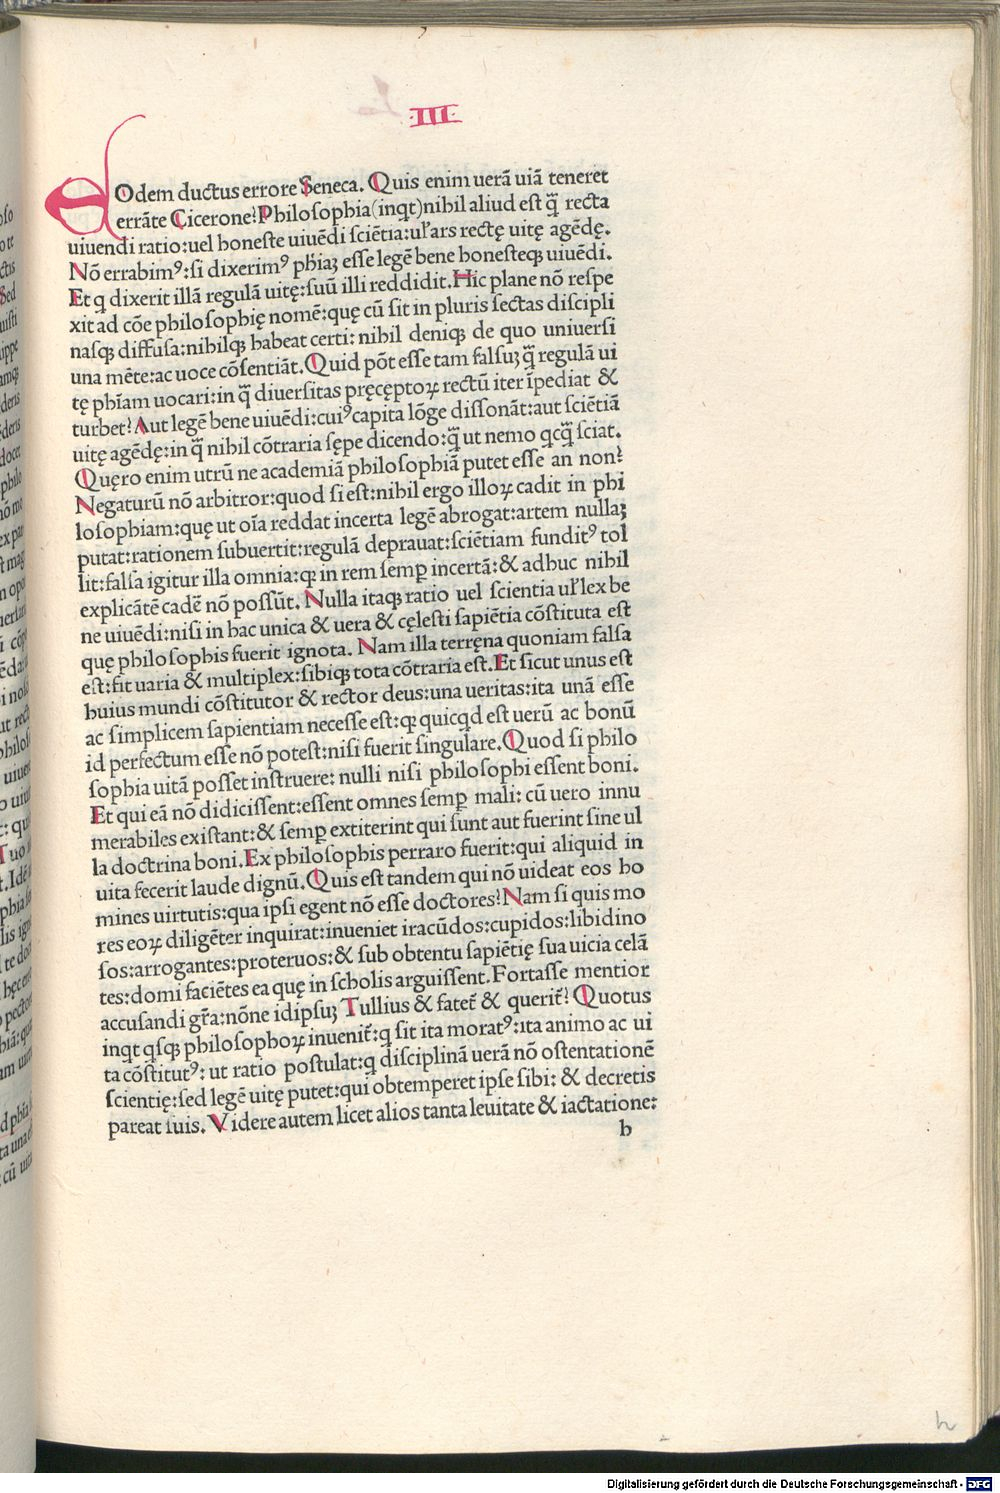 ·III·
EOdem ductus errore Seneca. Quis enim uerã uiã teneret
errãte Cicerone? Philosophia (inqt) nihil aliud est q̃ recta
uiuendi ratio: uel honeste uiuẽdi sciẽtia: uł ars rectę uitę agẽdę.
Nõ errabimꝰ: si dixerimꝰ phiaꝫ esse legẽ bene honesteqꝫ uiuẽdi.
Et q dixerit illã regulã uitę: suũ illi reddidit. Hic plane nõ respe
xit ad cõe philosophię nomẽ: quę cũ sit in pluris sectas discipli
nasqꝫ diffusa: nihilqꝫ habeat certi: nihil deniqꝫ de quo uniuersi
una mẽte: ac uoce cõsentiãt. Quid põt esse tam falsuꝫ q̃ regulã ui
tę phĩam uocari: in q̃ diuersitas pręcęptoꝝ rectũ iter ĩpediat &
turbet? Aut legẽ bene uiuẽdi: cuiꝰ capita lõge dissonãt: aut sciẽtiã
uitę agẽdę: in q̃ nihil cõtraria sępe dicendo: q̃ ut nemo qcq̃ sciat.
Quęro enim utrũ ne academiã philosophiã putet esse an non?
Negaturũ nõ arbitror: quod si est: nihil ergo illoꝝ cadit in phi
losophiam: quę ut oĩa reddat incerta legẽ abrogat: artem nullaꝫ
putat: rationem subuertit: regulã deprauat: sciẽtiam funditꝰ tol
lit: falsa igitur illa omnia: qꝛ in rem semꝑ incertã: & adhuc nihil
explicãtẽ cadẽ nõ possũt. Nulla itaqꝫ ratio uel scientia uł lex be
ne uiuẽdi: nisi in hac unica & uera & cęlesti sapiẽtia cõstituta est
quę philosophis fuerit ignota. Nam illa terręna quoniam falsa
est: fit uaria & multiplex: sibiqꝫ tota cõtraria est. Et sicut unus est
huius mundi cõstitutor & rector deus: una ueritas: ita unã esse
ac simplicem sapientiam necesse est: qꝛ quicqd est uerũ ac bonũ
id perfectum esse nõ potest: nisi fuerit singulare. Quod si philo
sophia uitã posset instruere: nulli nisi philosophi essent boni.
Et qui eã nõ didicissent: essent omnes semꝑ mali: cũ uero innu
merabiles existant: & semꝑ extiterint qui sunt aut fuerint sine ul
la doctrina boni. Ex philosophis perraro fuerit: qui aliquid in
uita fecerit laude dignũ. Quis est tandem qui nõ uideat eos ho
mines uirtutis: qua ipsi egent nõ esse doctores? Nam si quis mo
res eoꝝ diligẽter inquirat: inueniet iracũdos: cupidos: libidino
sos: arrogantes: proteruos: & sub obtentu sapiẽtię sua uicia celã
tes: domi faciẽtes ea quę in scholis arguissent. Fortasse mentior
accusandi gr̃a: nõne idipsuꝫ Tullius & fatet̃ & querit̃? Quotus
inqt qsqꝫ philosophoꝝ inuenit̃: q sit ita moratꝰ: ita animo ac ui
ta cõstitutꝰ: ut ratio postulat: q disciplinã uerã nõ ostentationẽ
scientię: sed legẽ uitę putet: qui obtemperet ipse sibi: & decretis
pareat suis. Videre autem licet alios tanta leuitate & iactatione:
h
h
Digitalisierung gefördert durch die Deutsche Forschungsgemeinschaft - DFG